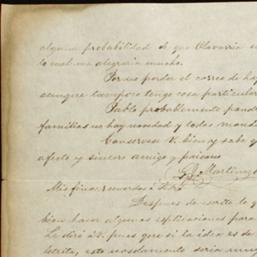 alguna probabilidad de que Olavarria
lo cual me alegraria mucho.
Por no perder el correo de hoy
aunque tampoco tengo cosa particular
Pablo probablemente
familias no hay novedad y todos
Conservese V. bien y sabe q
afecto y sincero amigo y paisano
Martinez
Mis finos recuerdos á
Despues de escrito lo q
bien hacer algunas esplicaciones para
Le diré á V. pues que si la idea es de
esto nosdamente seria muy